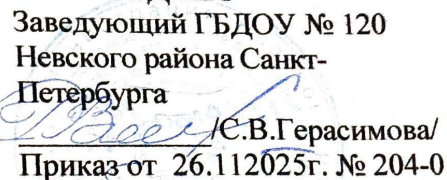 Заведующий ГБДОУ № 120
Невского района Санкт-
Петербурга
/С.В.Герасимова/
Приказ от 26.112025г. № 204-0